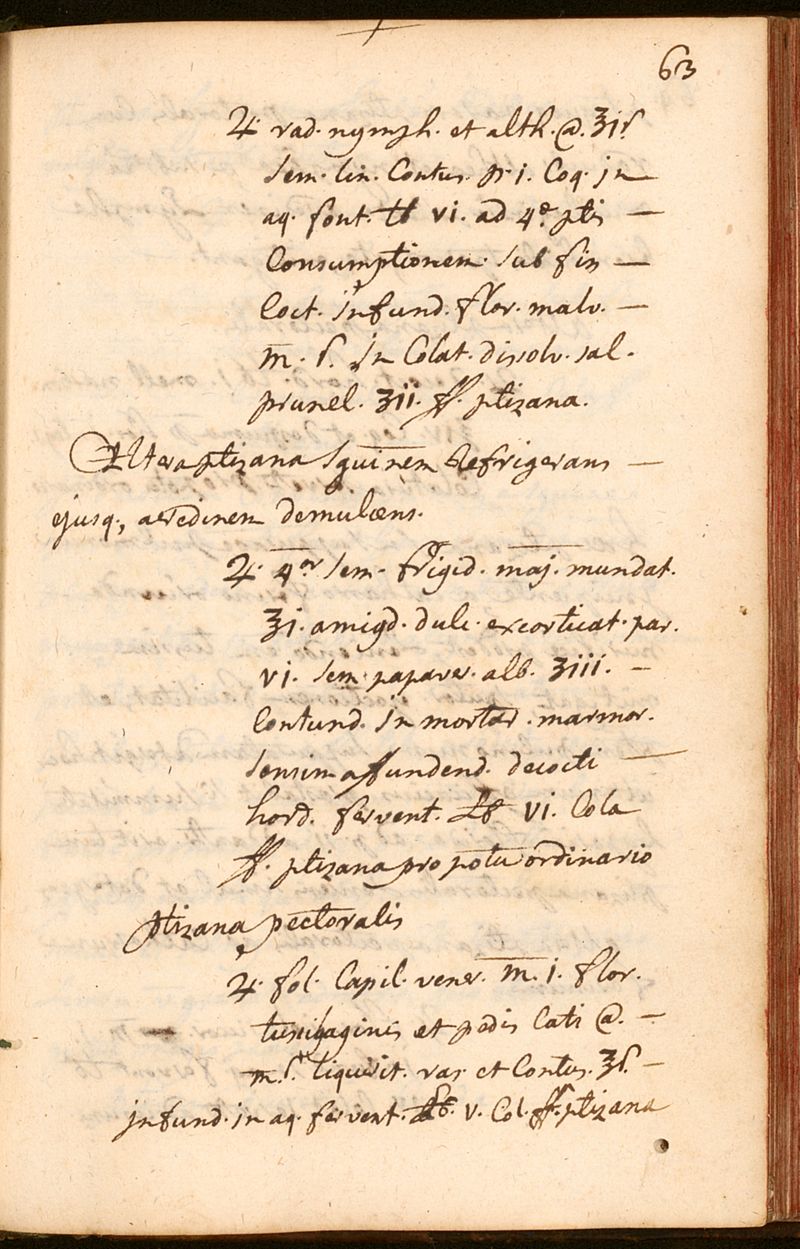 63
♃. rad. nymph. et alth. @. ℥iß
sem. lin. Contus. p. i. Coq. in
aq. font. ℔ vi. ad 4ae ptis
Consumptionem. sub fin
Coct. infund. flor. malv.
m. ß. in Colat. dissolv. sal.
prunel. ʒii. ff. ptizana.
Altera ptizana sguinem Refrigerans
ejusq, acredinem demulcens.
♃. 4or sem. frigid. maj. mundat.
℥i. amigd. dulc. excorticat. par.
vi. sem. papaver. alb. ʒiii.
Contund. in mortar. marmor.
sensim affundend. decocti
hord. fervent. ℔ vi. Cola
ff. ptizana pro potu ordinario
ptizana pectoralis
♃. fol. Capil. vener. m. i. flor.
tussilaginis et pedis Cati @.
m. ß. liquirit. ras. et Contus. ℥ß.
infund. in aq. fervent. ℔. v. Col. ff. ptizana